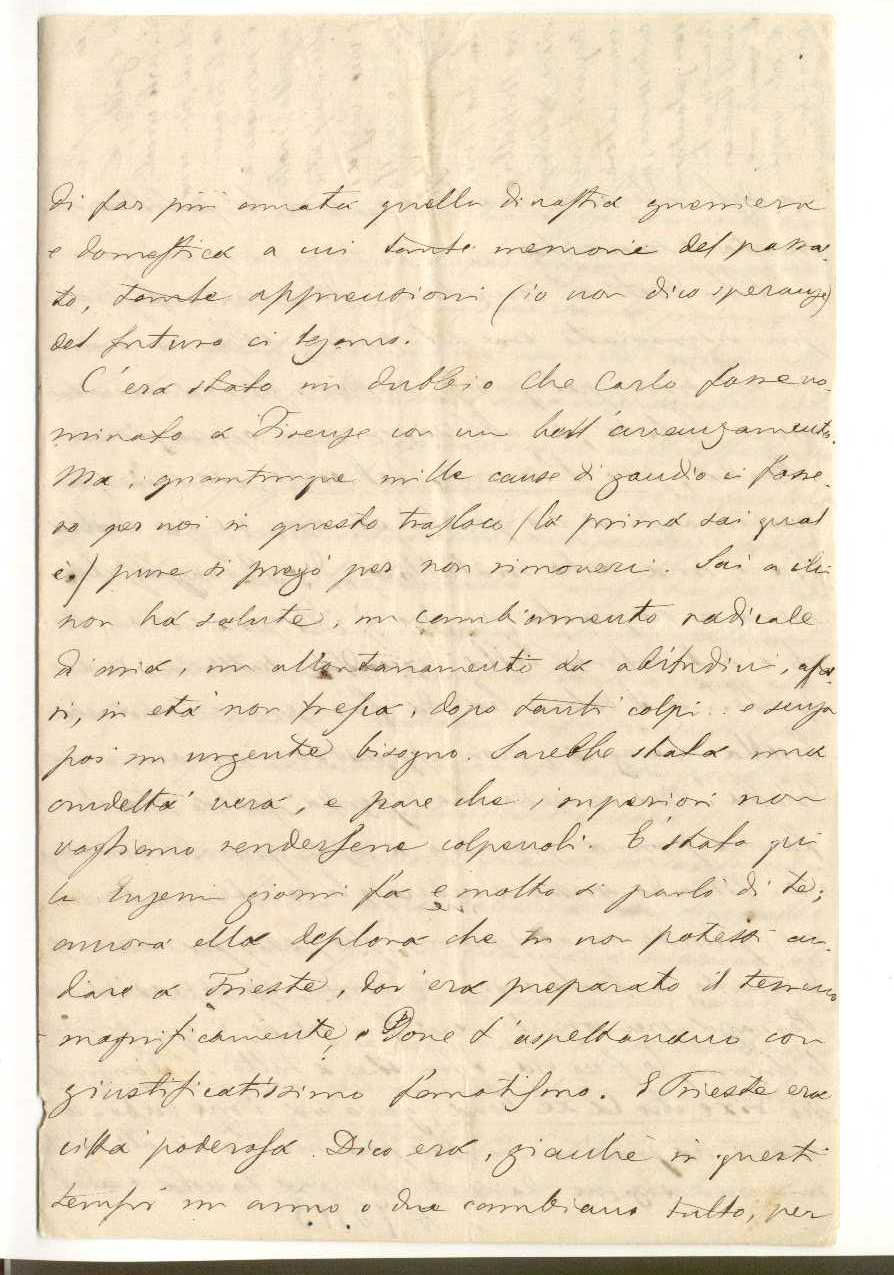 di far più amata quella dinastia guerriera
e domestica a cui tante memorie del passa-
to, tante apprensioni (io non dico speranze)
del futuro ci legano.
C'era stato un dubbio che Carlo fosse no-
minato a Firenze con un bell'avanzamento.
Ma, quantunque mille cause di gaudio ci fosse-
ro per noi in questo trasloco (la prima sai qual
è.) pure si pregò per non rimoverci. Sai a chi
non ha salute, un cambiamento radicale
d'aria, un allontanamento da abitudini, affa-
ri, in età non fresca, dopo tanti colpi.. e senza
poi un urgente bisogno. Sarebbe stata una
crudeltà vera, e pare che i superiori non
vogliano rendersene colpevoli. È stata qui
la Eugenia giorni fa e molto si parlò di te;
ancora ella deplora che tu non potessi an-
dare a Trieste, dov'era preparato il terreno
magnificamente, e Dove t'aspettavano con
giustificatissimo fanatismo. E Trieste era
città poderosa. Dico era, giacchè in questi
tempi un anno o due cambiano tutto, per